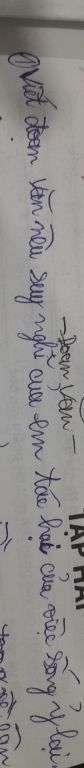 TẬP HAI
- Đoạn văn -
① Viết đoạn văn nêu suy nghĩ của em tác hại của việc sống ỷ lại